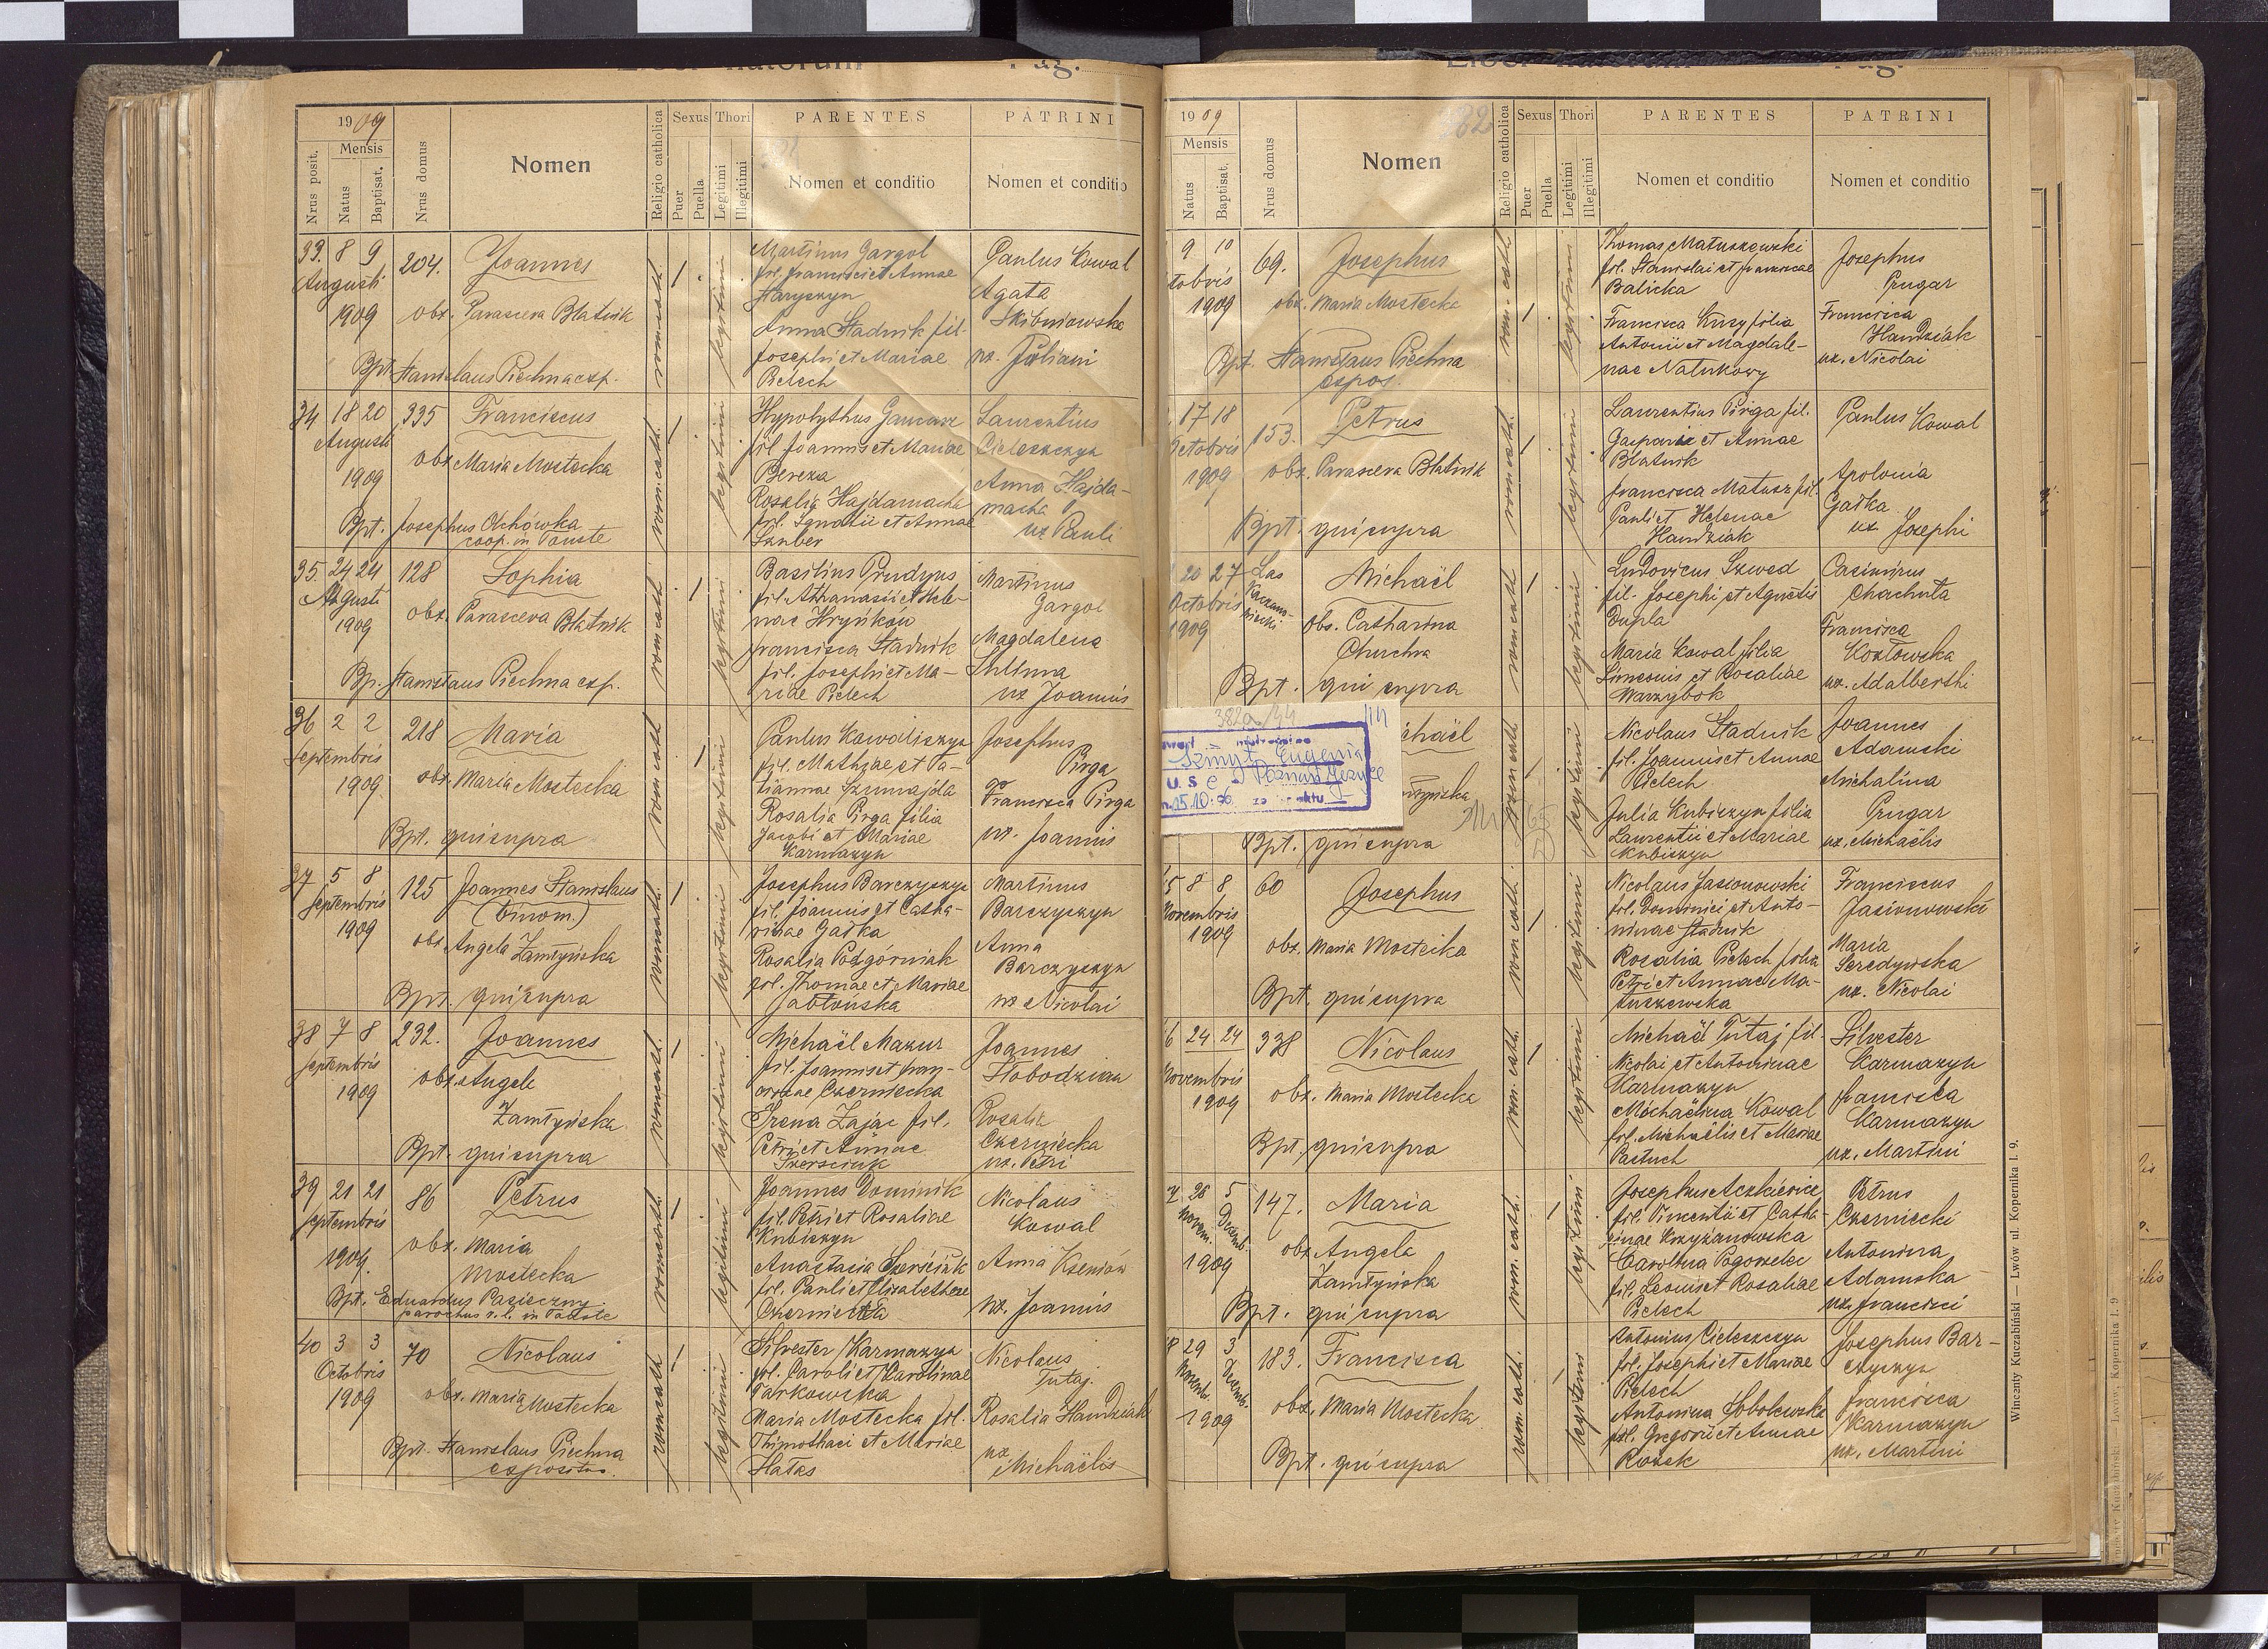 Liber natorum Pag.
1909
Nrus posit.
Mensis
Natus
Baptisat.
Nrus domus
Nomen
Religio catholica
Sexus
Puer
Puella
Thori
Legitimi
Illegitimi
PARENTES
Nomen et conditio
PATRINI
Nomen et conditio
33. 8 9
Augusti
1909
204.
Joannes
obs. Parasceva Blatnik
Bpt. Stanislaus Piechna exp.
rom. cath.
legitimi
Martinus Gargol
fil. Francisci et Annae
Haryszyn
Anna Stadnik fil.
Josephi et Mariae
Pelech
Paulus Kowal
Agata
Skibniowska
ux. Juliani
34 18 20
Augusti
1909
335
Franciscus
obs. Maria Mostecka
Bpt. Josephus Olchówka
coop. in Touste
rom. cath.
legitimi
Hypolythus Gancarz
fil. Joannis et Mariae
Bereza
Rosalia Hajdamacha
fil. Ignatii et Annae
Szuber
Laurentius
Cieleszczyn
Anna Hajda-
macha
ux Pauli
35. 24 24
Augusti
1909
128
Sophia
obs. Parasceva Blatnik
Bp. Stanislaus Piechna exp.
rom cath
legitimi
Basilius Prudyus
fil. Athanasii et Hele-
nae Hryńków
Francisca Stadnik
fil. Josephi et Ma-
riae Pelech
Martinus
Gargol
Magdalena
Shlima
ux Joannis
36 2 2
Septembris
1909
218
Maria
obs. Maria Mostecka
Bpt. qui supra
rom cath
legitimi
Paulus Kowaliszyn
fil. Mathiae et Ta-
tiannae Szmajda
Rosalia Pirga filia
Jacobi et Mariae
Karmazyn
Josephus
Pirga
Francisca Pirga
ux. Joannis
37 5 8
Septembris
1909
125
Joannes Stanislaus
(binom.)
obs. Angela Zamłyńska
Bpt. qui supra
rom cath.
legitimi
Josephus Barczyszyn
fil. Joannis et Catha-
rinae Gałka
Rosalia Podgórniak
fil. Thomae et Mariae
Jabłońska
Martinus
Barczyszyn
Anna
Barczyszyn
ux Nicolai
38 7 8
Septembris
1909
232.
Joannes
obs. Angela
Zamłyńska
Bpt. qui supra
rom cath.
legitimi
Michaël Mazur
fil. Joannis et Fran-
ciscae Czerniecka
Irena Zając fil.
Petri et Annae
Szersciuk
Joannes
Słobodzian
Rosalia
Czerniecka
ux. Petri
39 21 21
Septembris
1909.
86
Petrus
obs. Maria
Mostecka
Bpt. Eduardus Pasieczny
parochus r. l. in Touste
rom cath
legitimi
Joannes Dominik
fil. Petri et Rosaliae
Kubiszyn
Anastasia Szerściuk
fil. Pauli et Elisabethae
Czerniecka
Nicolaus
Kowal
Anna Kseniów
ux. Joannis
40 3 3
Octobris
1909
70
Nicolaus
obs. Maria Mostecka
Bpt. Stanislaus Piechna
expositus.
rom cath
legitimi
Silvester Karmazyn
fil. Caroli et Carolinae
Tarkowska
Maria Mostecka fil.
Thimothaei et Mariae
Hałas
Nicolaus
Tutaj.
Rosalia Handziak
ux
Michaëlis
1909
Mensis
Natus
Baptisat.
Nrus domus
Nomen
382
Religio catholica
Sexus
Puer
Puella
Thori
Legitimi
Illegitimi
PARENTES
Nomen et conditio
PATRINI
Nomen et conditio
9 10
tobris
1909
69.
Josephus
obs. Maria Mostecka
Bpt. Stanislaus Piechna
expos.
rom. cath
legitimi
Thomas Matuszewski
fil. Stanislai et Franciscae
Balicka
Francisca Kusy filia
Antonii et Magdale-
nae Natukowy
Josephus
Prugar
Francisca
Handziak
ux. Nicolai
17 18
Octobris
1909
153.
Petrus
obs. Parasceva Blatnik
Bpt. qui supra
rom cath.
legitimi
Laurentius Pirga fil.
Gasparis et Annae
Blatnik
Francisca Matusz fil.
Pauli et Helenae
Handziak
Paulus Kowal
Apolonia
Gałka
ux Josephi
20 27
Octobris
1909
Las
Kaczano-
wiecki.
Michaël
obs. Catharina
Churchra
Bpt. qui supra
rom cath
legitimi
Ludovicus Szwed
fil. Josephi et Agnetis
Dupla
Maria Kowal filia
Simeonis et Rosaliae
Warzybok
Casimirus
Chachuta
Francisca
Kozłowska
ux. Adalberthi
382a/44
Szmyt Eugenia
U.S.C. Poznań Jeżyce
15.10.
za aktu
chaël
Bpt. qui supra
rom cath
legitimi
Nicolaus Stadnik
fil. Joannis et Annae
Pelech
Julia Kubiszyn filia
Laurentii et Mariae
Kubiszyn
Joannes
Adamski
Michalina
Prugar
ux. Michaëlis
5 8 8
Novembris
1909
60
Josephus
obs. Maria Mostecka
Bpt. qui supra
rom cath.
legitimi
Nicolaus Jasionowski
fil. Dominici et Anto-
ninae Stadnik
Rosalia Pelech filia
Petri et Annae Ma-
tuszewska
Franciscus
Jasionowski
Maria
Seredyńska
ux. Nicolai
6 24 24
Novembris
1909
338
Nicolaus
obs. Maria Mostecka
Bpt. qui supra
rom. cath.
legitimi
Michaël Tutaj fil.
Nicolai et Antoninae
Karmazyn
Michaëlina Kowal
fil. Michaëlis et Mariae
Pastuch
Silvester
Karmazyn
Francisca
Karmazyn
ux. Martini
7 28 5
Novem. Decemb.
1909
147.
Maria
obs. Angela
Zamłyńska
Bpt. qui supra
rom. cath.
legitimi
Josephus Aczkiewicz
fil. Vincentii et Catha-
rinae Krzyżanowska
Carolina Pogorzelec
fil. Leonis et Rosaliae
Pelech
Petrus
Czerniecki
Antonina
Adamska
ux. Francisci
8 29 3
Novemb. Decemb.
1909
183.
Francisca
obs. Maria Mostecka
Bpt. qui supra
rom. cath.
legitimi
Antonius Cieleszczyn
fil. Josephi et Mariae
Pelech
Antonina Sobolewska
fil. Gregorii et Annae
Rożek
Josephus Bar-
czyszyn
Francisca
Karmazyn
ux. Martini
Winczanty Kuczabiński — Lwów ul Kopernika l. 9.